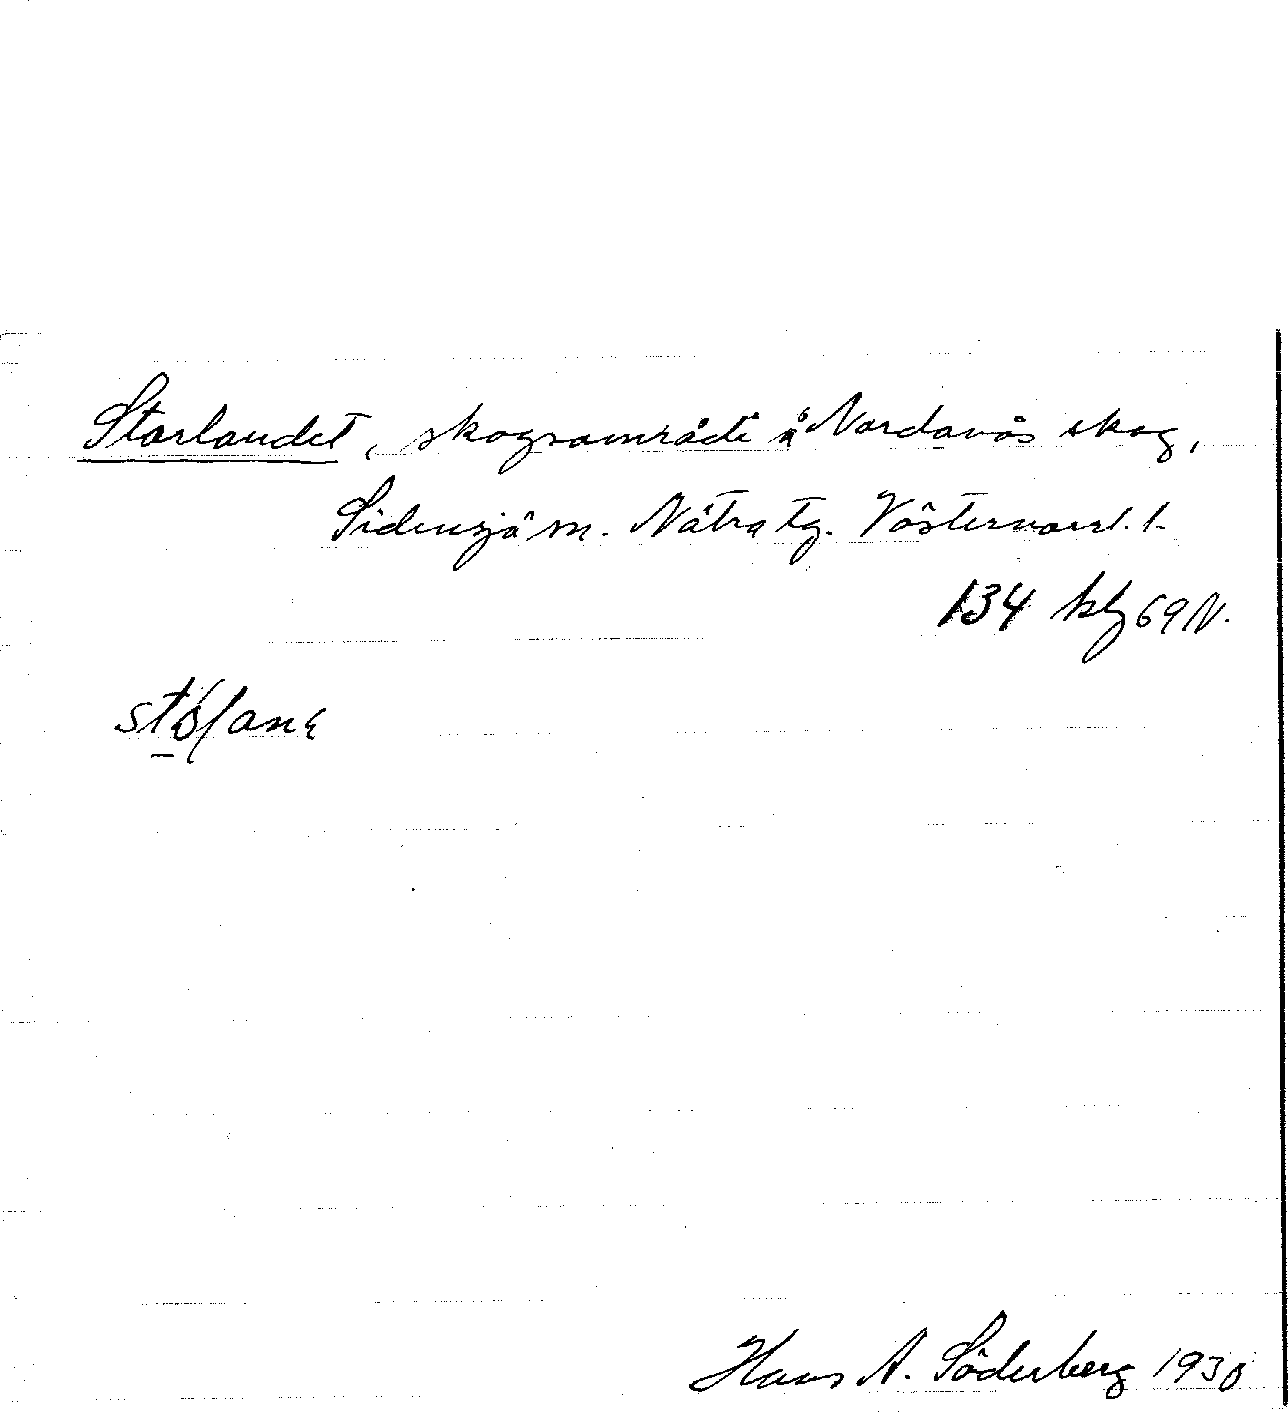 Storlandet, skogsområde å Nordanås skog,
Sidensjö sn. Nätra tg. Västernorrl. l.
134 kbg 69 N.
Hans A. Söderberg 1930